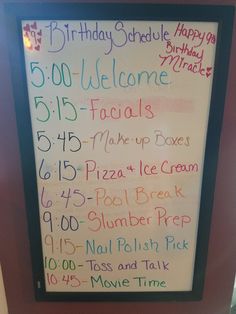 Birthday Schedule
Happy 9th
Birthday
Miracle
5:00-Welcome
5:15-Facials
5:45-Make-up Boxes
6:15-Pizza + Ice Cream
6:45-Pool Break
9:00-Slumber Prep
9:15-Nail Polish Pick
10:00-Toss and Talk
10:45-Movie Time